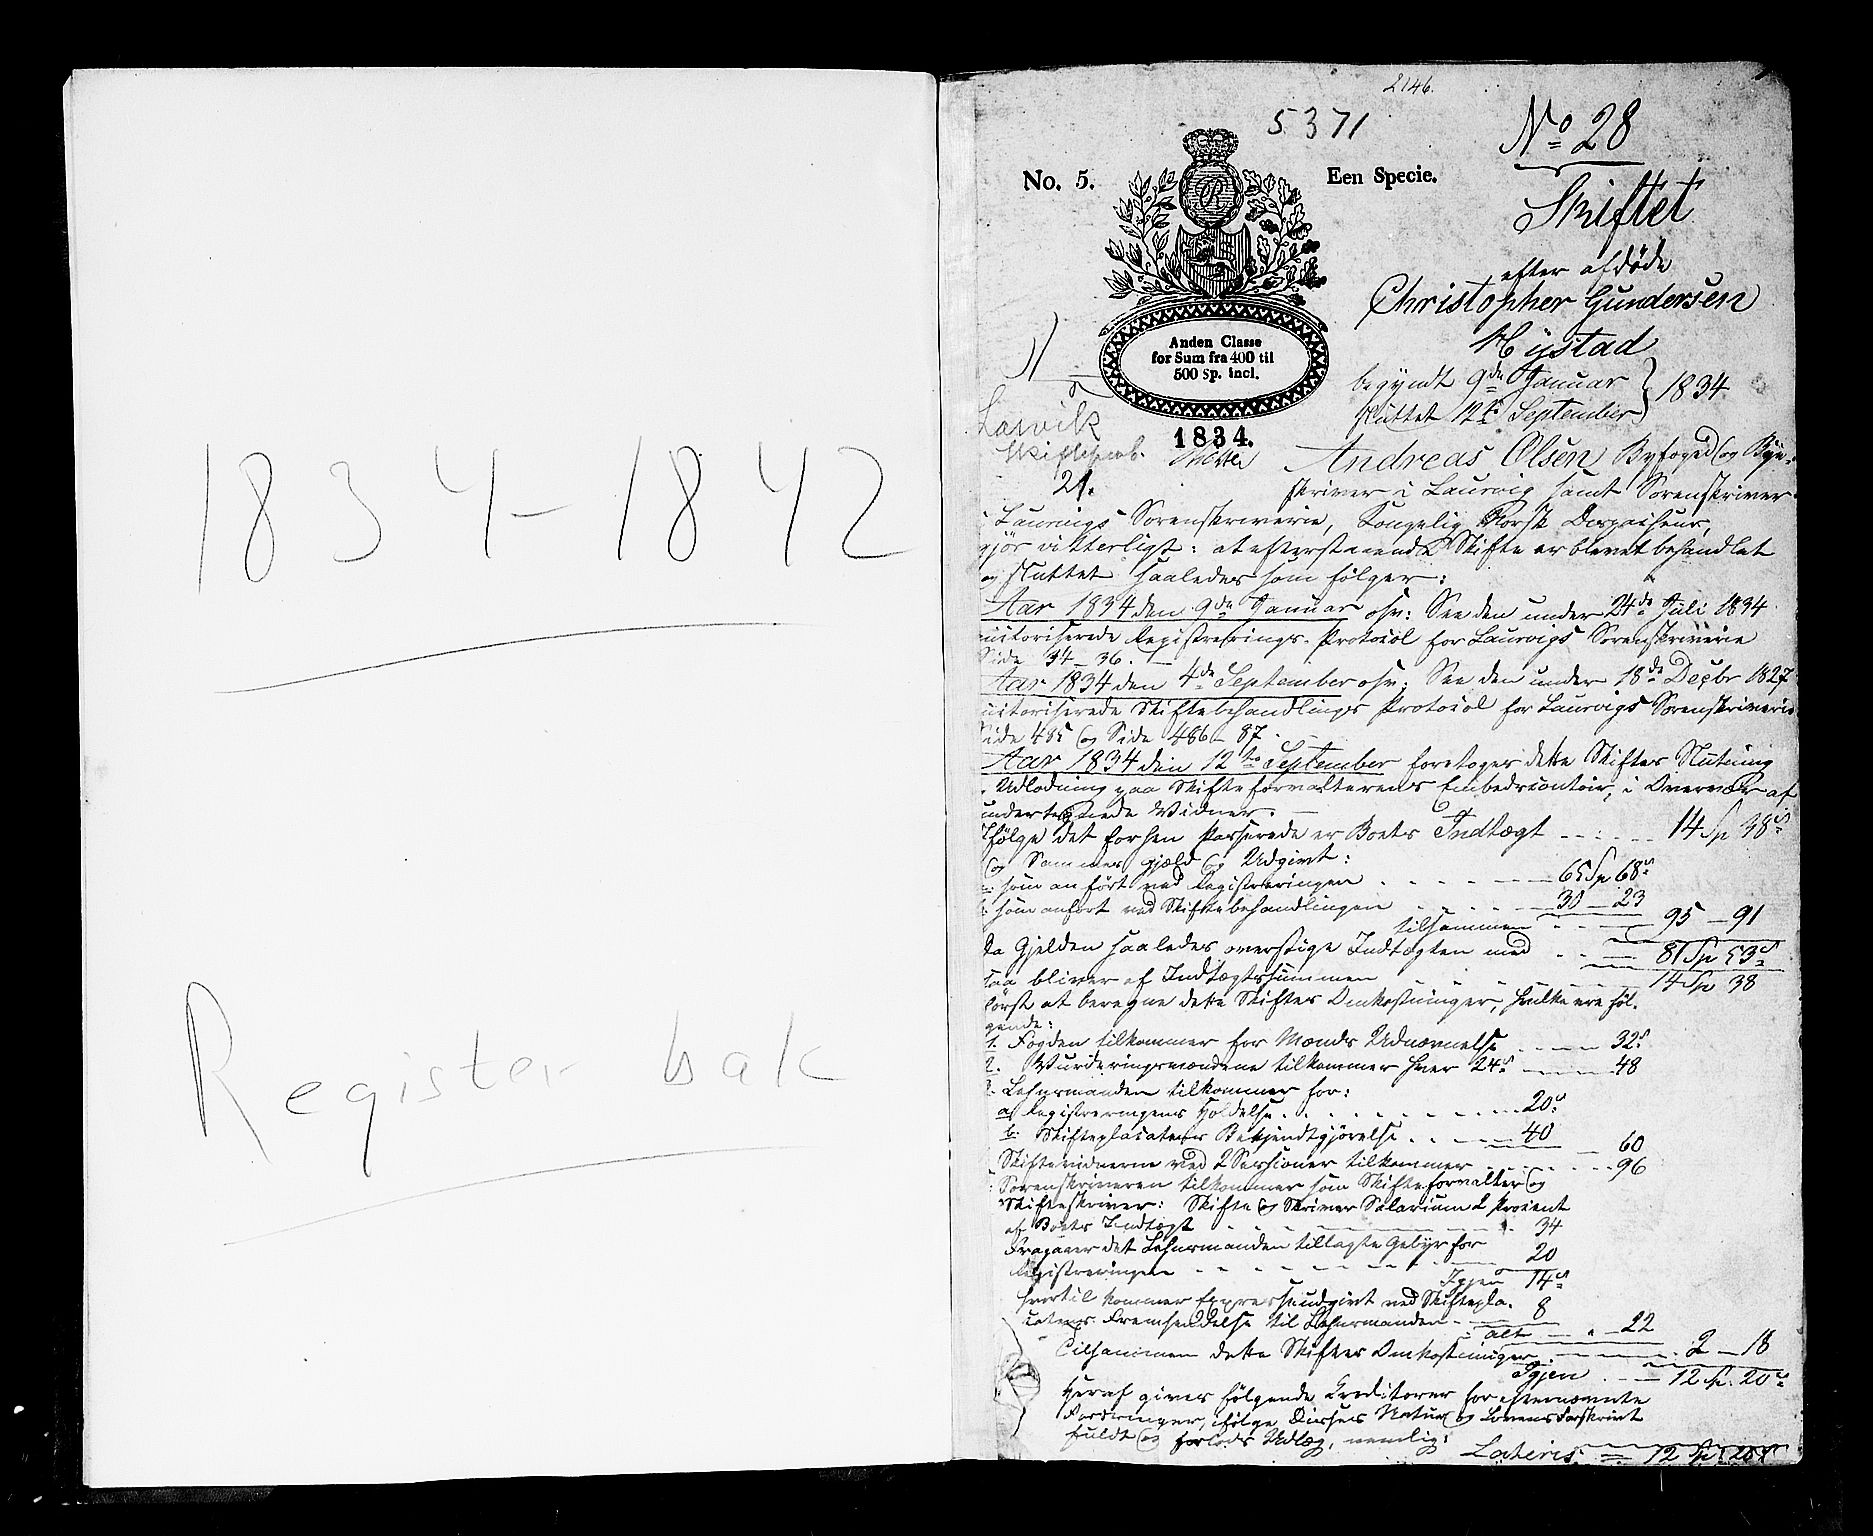 1834-1842
Register bak
2146.
5371
No 28
No. 5.
Een Specie.
R
Skiftet
efter afdøde
Christopher Gundersen
Hystad
Anden Classe
for Sum fra 400 til
500 Sp. incl.
begyndt 9de Januar
sluttet 12te September } 1834
Larvik
1834.
21.
Andreas Olsen Byfoged og Bye-
skriver i Laurvig samt Sorenskriver
i Laurvigs Sorenskriverie, Kongelig Norsk
gjør vitterligt: at efterstaaende Skifte er blevet behandlet
og sluttet saaledes som følger:
Aar 1834 den 9de Januar osv: See den under 24de Juli 1834
autoriserede Registrerings-Protocol for Laurvigs Sorenskriverie
Side 34-36.
Aar 1834 den 4de September osv: See den under 18de Decbr 1827
autoriserede Skiftebehandlings Protocol for Laurvigs Sorenskriverie
Side 485 og Side 486-87.
Aar 1834 den 12te September foretoges dette Skiftes Slutning
Udlodning paa Skifteforvalterens Embedscontoir, i Overvær af
undertegnede Vidner.
Ifølge det forhen passerede er Boets Indtægt 14 Sp 38s
og Sammes Gjæld og Udgivt:
som anført ved Registreringen 65 Sp 68s
som anført ved Skiftebehandlingen 30 - 23
tilsammen 95 - 91
Da Gjelden saaledes overstige Indtægten med 81 Sp 53s
saa bliver af Indtægtssummen 14 Sp 38
først at beregne dette Skiftes Omkostninger, hvilke ere føl-
gende:
1. Fogden tilkommer for Mænds Udnævnelse 32s
2. Vurderingsmændene tilkommer hver 24s 48
3. Lehnsmanden tilkommer for:
a, Registreringens Holdelse 20s
b. Skifteplacatens Bekjendtgjørelse 40
60
Skiftevidnerne ved 2 Sessioner tilkommer 96
Sorenskriveren tilkommer som Skifteforvalter og
Skifteskriver: Skifte og Skriver Salarium 2 Procent
af Boets Indtægt 34
Fragaaer det Lehnsmanden tillagte Gebyr for
Registreringen 20
Igjen 14s
hvortil kommer Expresseudgivt ved Skiftepla-
catens Fremsendelse til Lehnsmanden 8
alt 22
Tilsammen dette Skiftes Omkostninger 2 - 18
Igjen 12 Sp. 20s
Heraf gives følgende Creditorer for efternævnte
Fordringer, ifølge Disses Natur og Lovens Forskrivt
fuldt og Udlæg, nemlig:
Lateris 12 Sp 20s